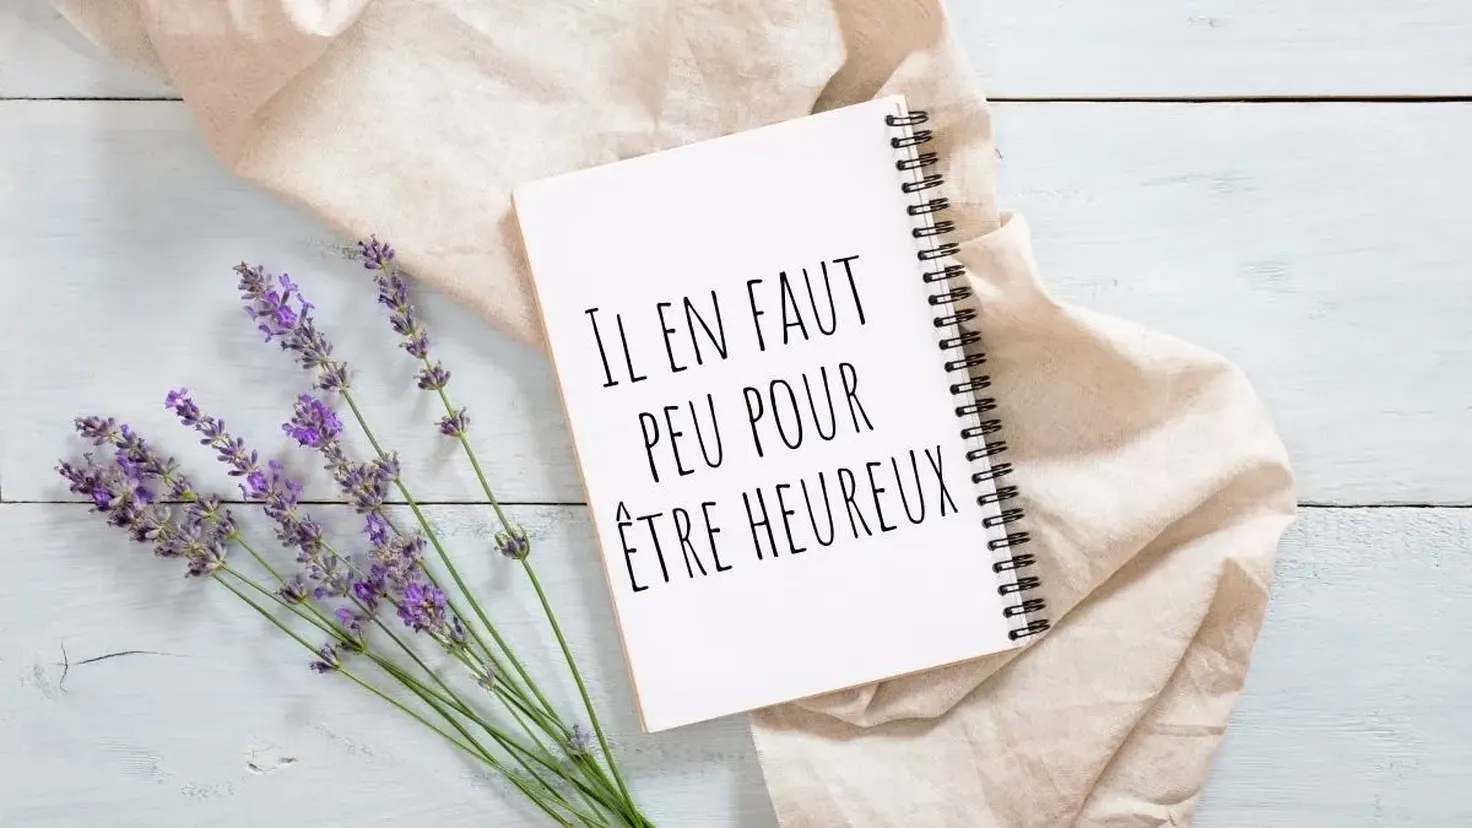 Il en faut
peu pour
être heureux